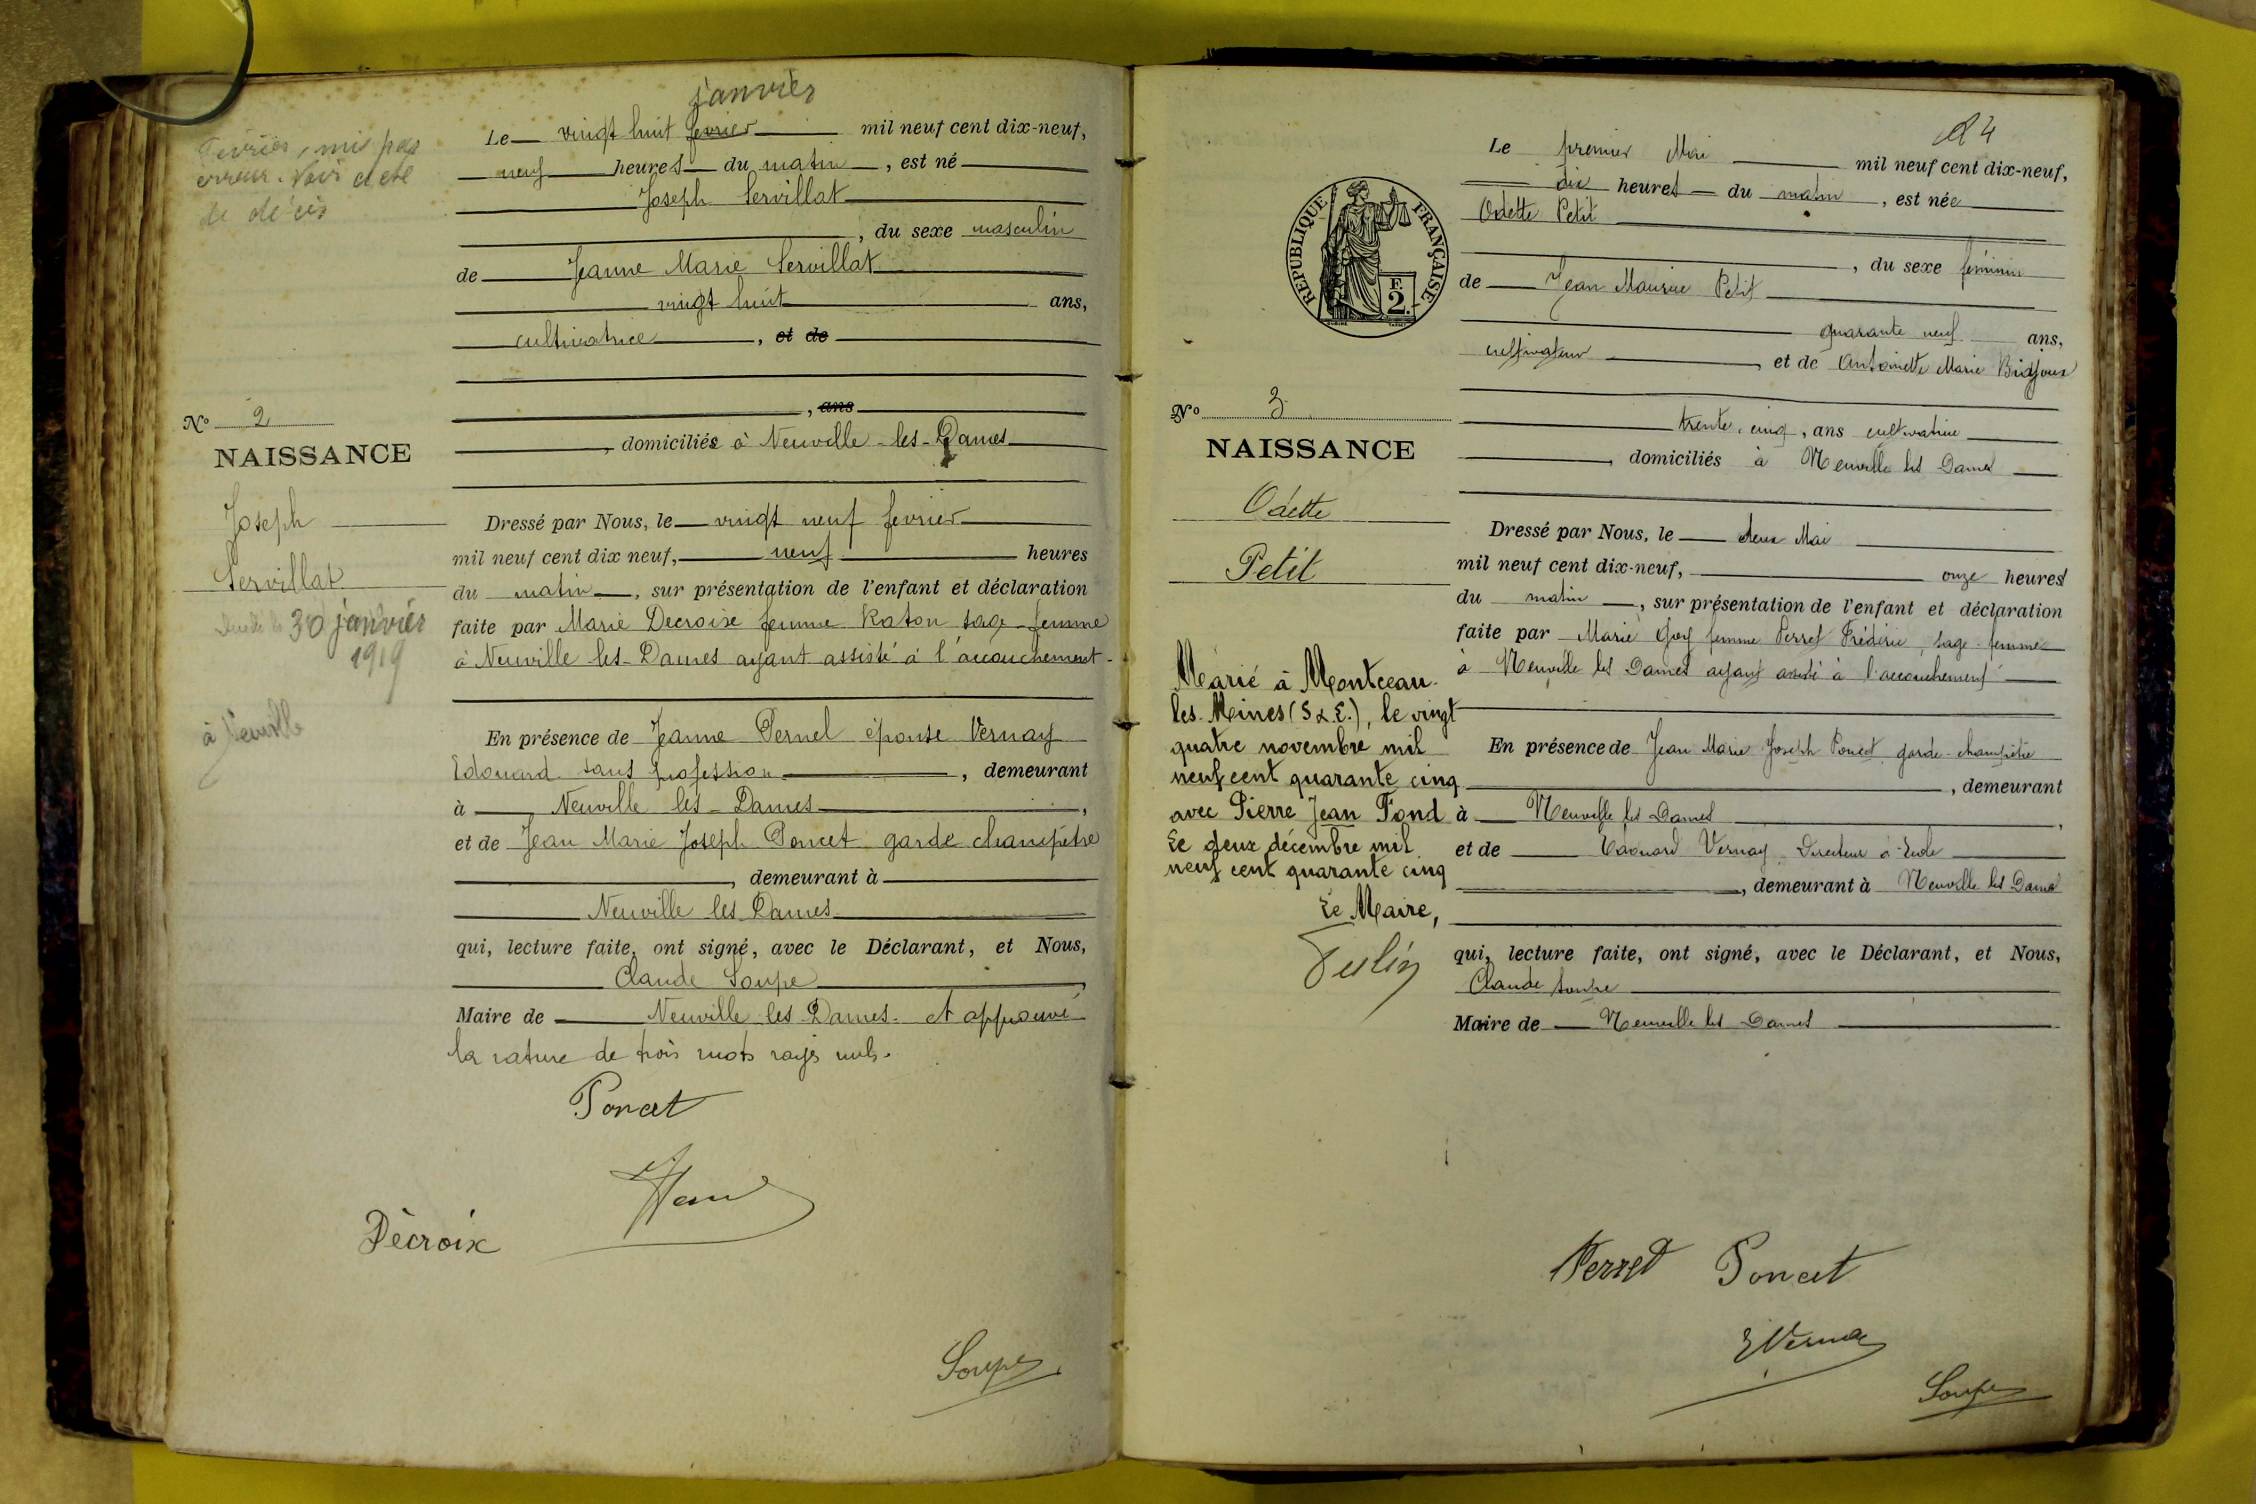 janvier
Le vingt huit fevrier mil neuf cent dix-neuf,
neuf heures du matin, est né
Joseph Servillat
, du sexe masculin
de Jeanne Marie Servillat
vingt huit ans,
cultivatrice, et de
, ans
, domiciliés à Neuville-les-Dames
Dressé par Nous, le vingt neuf fevrier
mil neuf cent dix neuf, neuf heures
du matin, sur présentation de l'enfant et déclaration
faite par Marie Decroix femme Raton sage-femme
à Neuville-les-Dames ayant assisté à l'accouchement
En présence de Jeanne Pernel épouse Vernay
Edouard sans profession, demeurant
à Neuville les-Dames,
et de Jean Marie Joseph Poncet garde champêtre
, demeurant à
Neuville les Dames
qui, lecture faite, ont signé, avec le Déclarant, et Nous,
Claude Soupe,
Maire de Neuville les Dames. et approuvé
la rature de trois mots rayés nuls.
Poncet
Decroix
Soupe
Fevrier, mis par
erreur. Voir acte
de décès
No 2
NAISSANCE
Joseph
Servillat
30 janvier
1919
à Neuville
4
Le premier Mai mil neuf cent dix-neuf,
dix heures du matin, est née
Odette Petit
, du sexe féminin
de Jean Maurice Petit
quarante neuf ans,
cultivateur, et de Antoinette Marie
trente cinq, ans cultivatrice
, domiciliés à Neuville les Dames
Dressé par Nous, le deux Mai
mil neuf cent dix-neuf, onze heures
du matin, sur présentation de l'enfant et déclaration
faite par Marie Guy femme Perret Frédéric, sage-femme
à Neuville les Dames ayant assisté à l'accouchement
En présence de Jean Marie Joseph Poncet garde-champêtre
, demeurant
à Neuville les Dames,
et de Edouard Vernay Directeur d'Ecole
, demeurant à Neuville les Dames
qui, lecture faite, ont signé, avec le Déclarant, et Nous,
Claude Soupe
Maire de Neuville les Dames
Perret Poncet
E Vernay
Soupe
RÉPUBLIQUE FRANÇAISE
F.
2.
No 3
NAISSANCE
Odette
Petit
Marié à Montceau-
les-Mines (S & L.), le vingt
quatre novembre mil
neuf cent quarante cinq
avec Pierre Jean Fond
Le deux décembre mil
neuf cent quarante cinq
Le Maire,